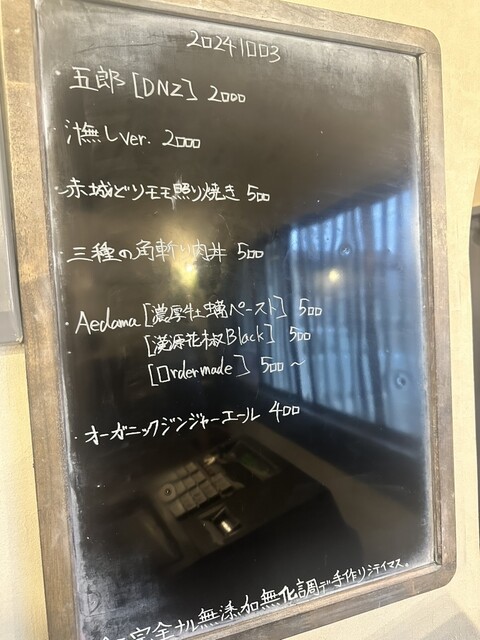 20241003
・五郎[DNZ] 2000
・汁無しver. 2000
・赤城どりモモ照り焼き 500
・三種の角斬り肉丼 500
・Aedama[濃厚牡蠣ペースト] 500
[漢源花椒Black] 500
[Ordermade] 500～
・オーガニックジンジャーエール 400
完全ナル無添加無化調デ手作リシテイマス。